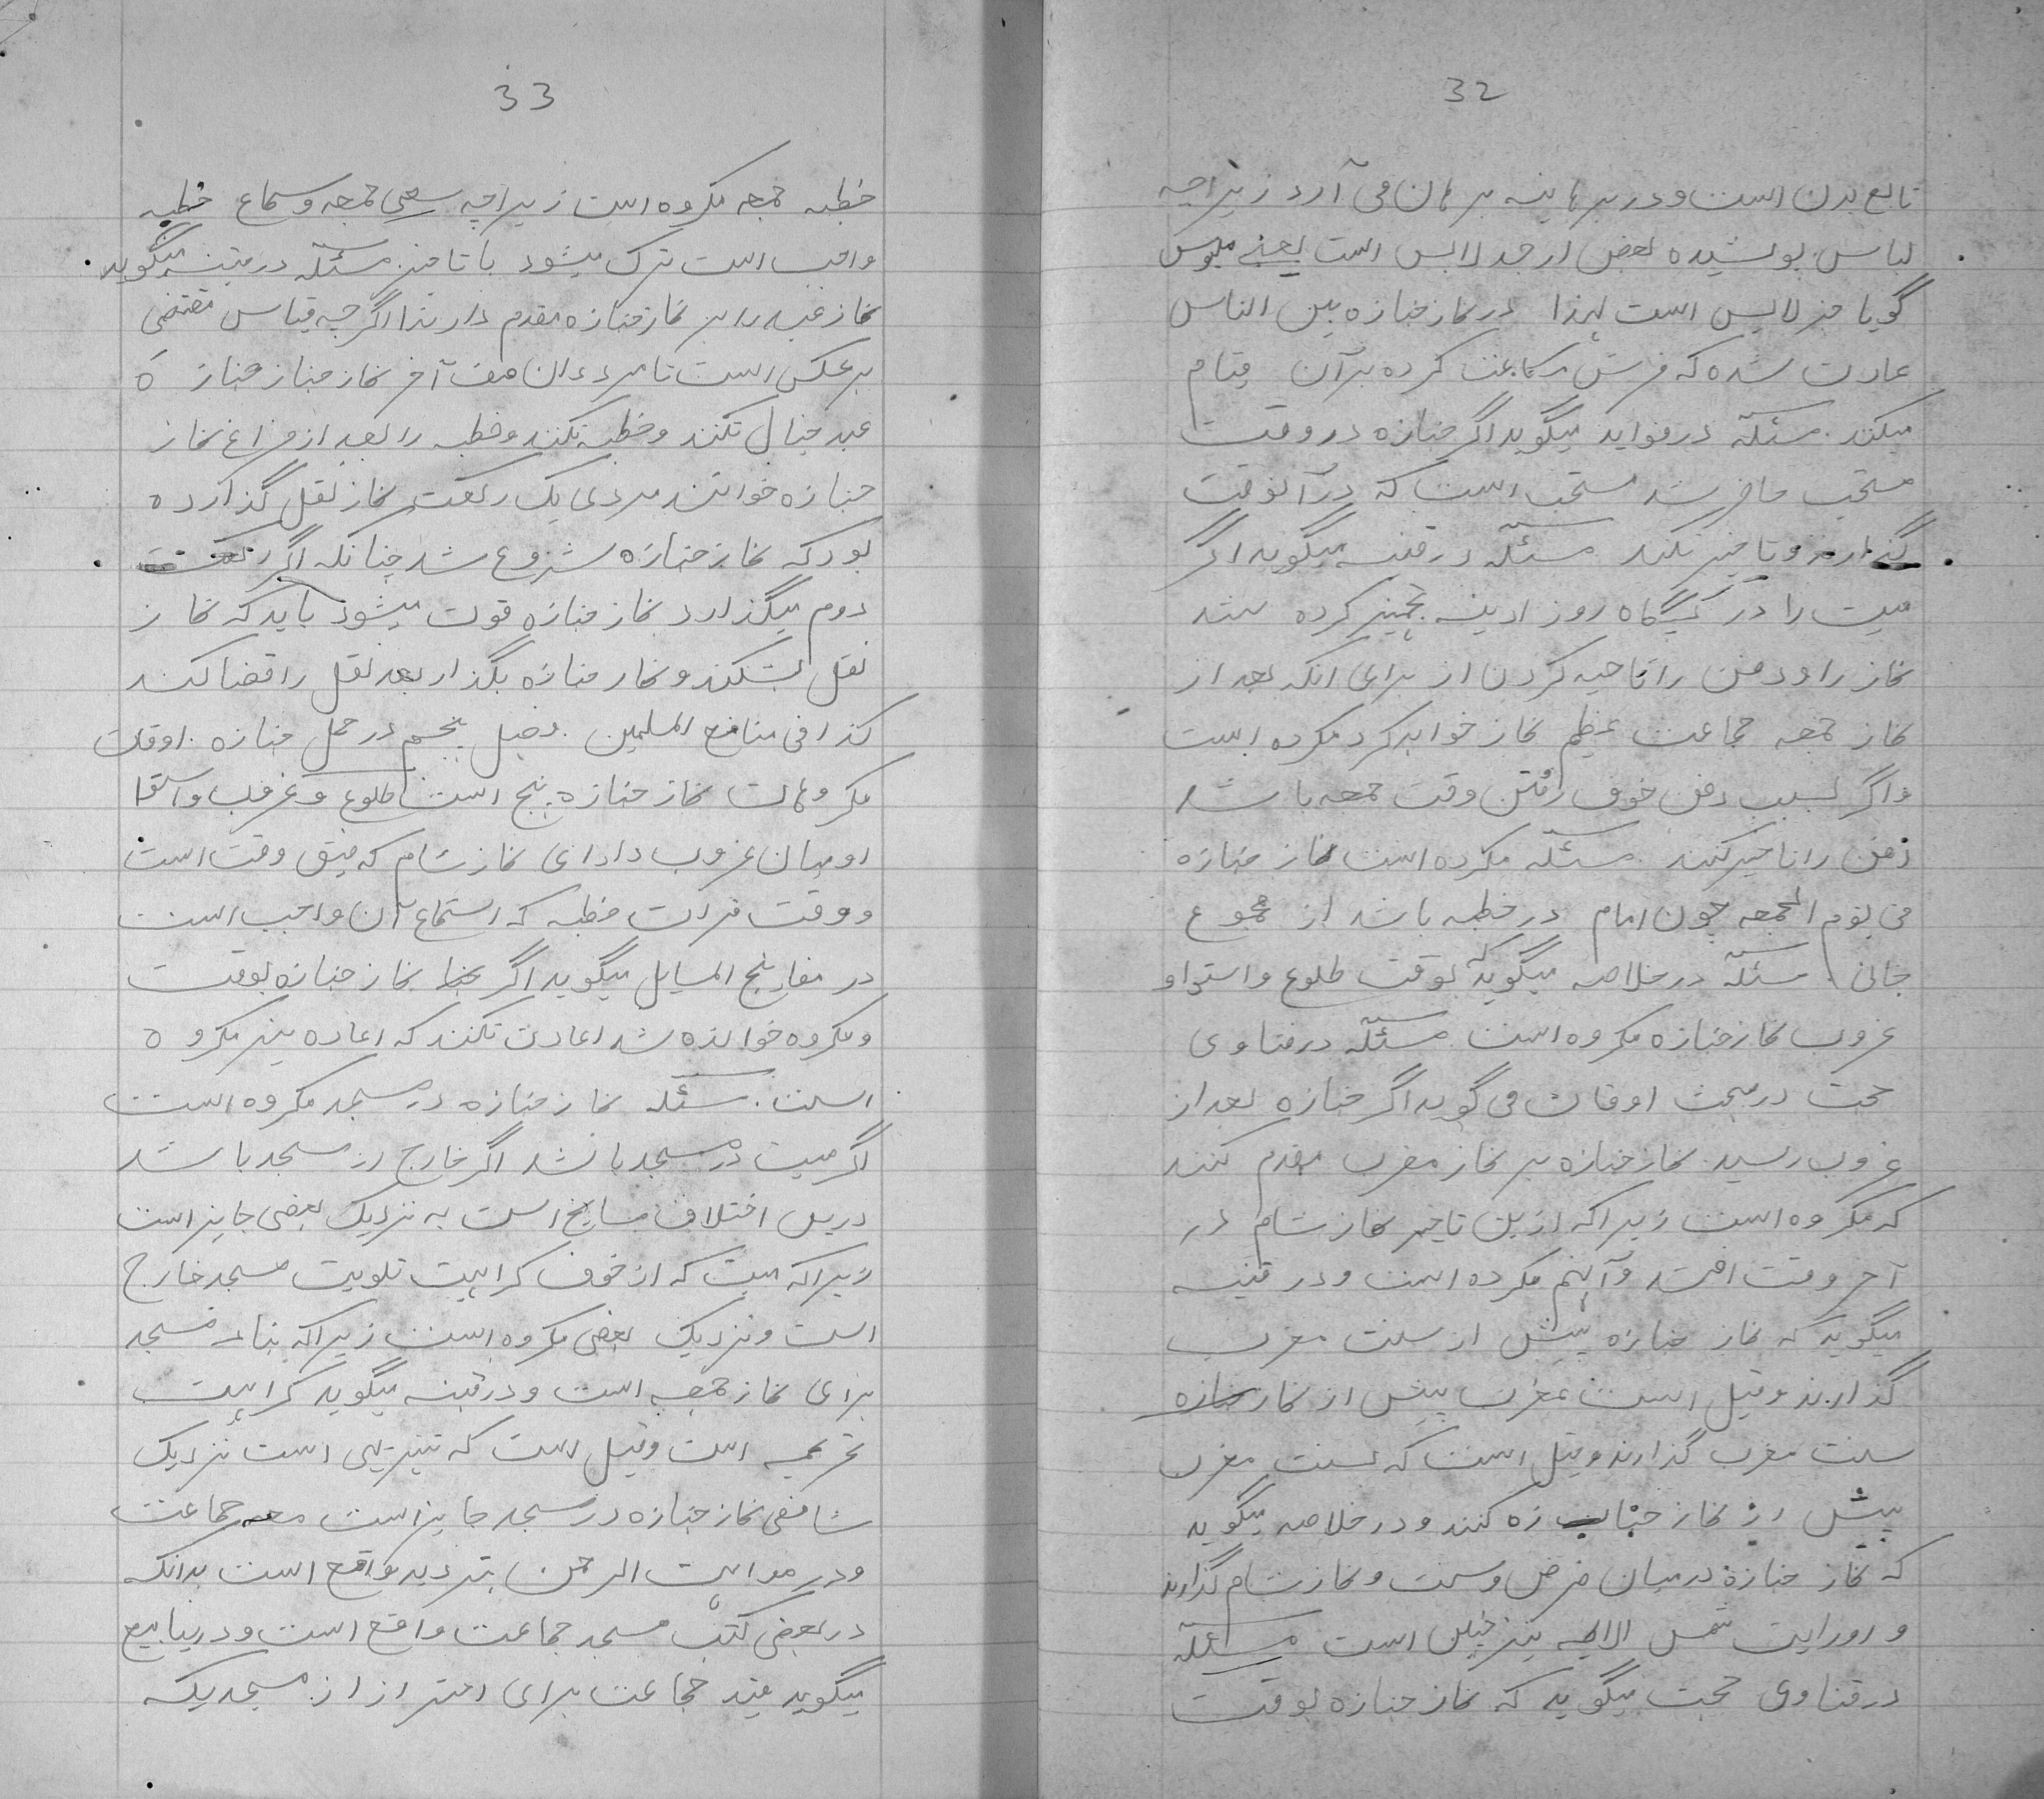 32
تابع بدن است و در برهاینه برهان می آرد زیراچه
لباس پوشیده بعض از جد لابس است یعنے ملبوس
گویا جز لابس است لهذا در نماز جنازه بین الناس
عادت شده که فرش کرده بر آن قیام
میکند. مسئله در فواید میگوید اگر جنازه در وقت
مستحب حاضر شد مستحب است که در آنوقت
گذارند و تاخیر نکند مسئله در قنیه میگوید اگر
میت را در پگاه روز ادینه تجهیز کرده شد
نماز را و دفن را تاخیر کردن از برای انکه بعد از
نماز جمعه جماعت عظیم نماز خواهد کرد مکرده است
و اگر بسبب دفن خوف رفتن وقت جمعه باشد
دفن را تاخیر کنند مسئله مکرده است نماز جنازه
فی یوم الجمعه چون امام در خطبه باشد از مجموع
خانی مسئله در خلاصه میگوید که بوقت طلوع و استوا و
غروب نماز جنازه مکروه است. مسئله در فتاوی
حجت در مبحث اوقات می گوید اگر جنازه بعد از
غروب رسید نماز جنازه بر نماز مغرب مقدم کنند
که مکروه است زیراکه ازین تاخیر نماز شام در
آخر وقت افتد و آنهم مکرده است و در قنیه
میگوید که نماز جنازه پیش از سنت مغرب
گذارند و قیل است مغرب پیش از نماز جنازه
سنت مغرب گذارند و قیل است که سنت مغرب
پیش از نماز جنازه کنند و در خلاصه میگوید
که نماز جنازه درمیان فرض و سنت و نماز شام گذارند
و روایت شمس الایمه نیز چنین است مسئله
در فتاوی حجت میگوید که نماز جنازه بوقت
33
خطبه جمعه مکروه است زیراچه سعی جمعه و سماع خطبه
واجب است ترک میشود با تاخیر. مسئله در قنیه میگوید
نماز عید را بر نماز جنازه مقدم دارند اگرچه قیاس مقتضی
برعکس است تا مردمان صف آخر نماز جناز جنازه
عید خیال نکنند و خطبه نکنند و خطبه را بعد از فراغ نماز
جنازه خوانند مردی یک رکعت نماز نفل گذارده
بود که نماز جنازه شروع شد چنانکه اگر رکعت
دوم میگذارد نماز جنازه فوت میشود باید که نماز
نفل بشکند و نماز جنازه بگذارد بعد نفل را قضا کند
کذا فی منافع المسلمین. فصل پنجم در حمل جنازه. اوقات
مکروهات نماز جنازه پنج است طلوع و غروب و استوا
او میان غروب دادای نماز شام که ضیق وقت است
و وقت قرات خطبه که استماع آن واجب است
در مفاتیح المسایل میگوید اگر نماز جنازه بوقت
و مکروه خوانده شد اعادت نکنند که اعاده نیز مکروه
است. مسئله نماز جنازه در مسجد مکروه است
اگر میت در مسجد باشد اگر خارج از مسجد باشد
درین اختلاف مشایخ است به نزدیک بعضی جایز است
زیراکه میت که از خوف کراهیت تلویث مسجد خارج
است و نزدیک بعضی مکروه است زیراکه بناء مسجد
برای نماز جمعه است و در قنیه میگوید کراهیت
تحریمه است و قیل است که تنزیهی است نزدیک
شافعی نماز جنازه در مسجد جایز است معه جماعت
و در مواهب الرحمن بتردید واقع است بدانکه
در بعضی کتب مسجد جماعت واقع است و در ینابیع
میگوید قید جماعت برای احتراز از مسجدیکه